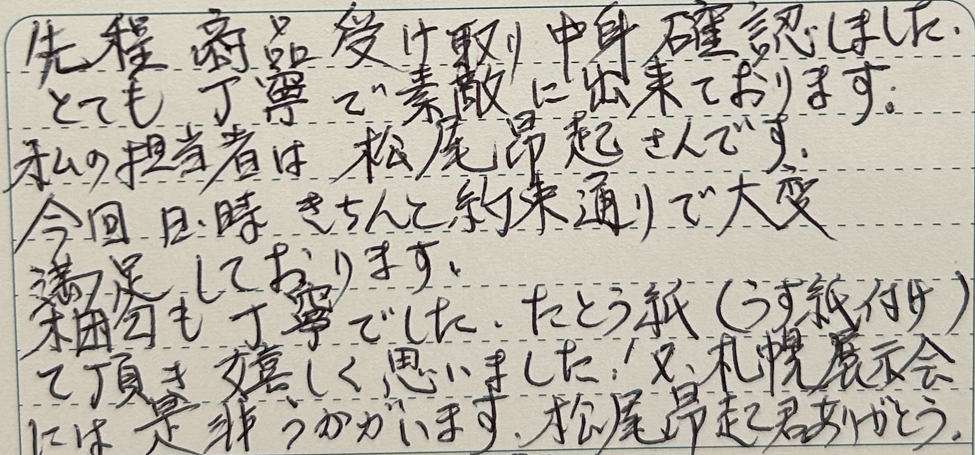 先程 商品 受け取り 中身 確認しました.
とても 丁寧 で素敵に出来ております.
私の担当者は 松尾昂起さんです.
今回 日.時 きちんと約束通りで大変
満足しております.
梱包も丁寧でした. たとう紙(うす紙付け)
て頂き嬉しく思いました! 又.札幌展示会
には是非うかがいます. 松尾昂起君ありがとう.